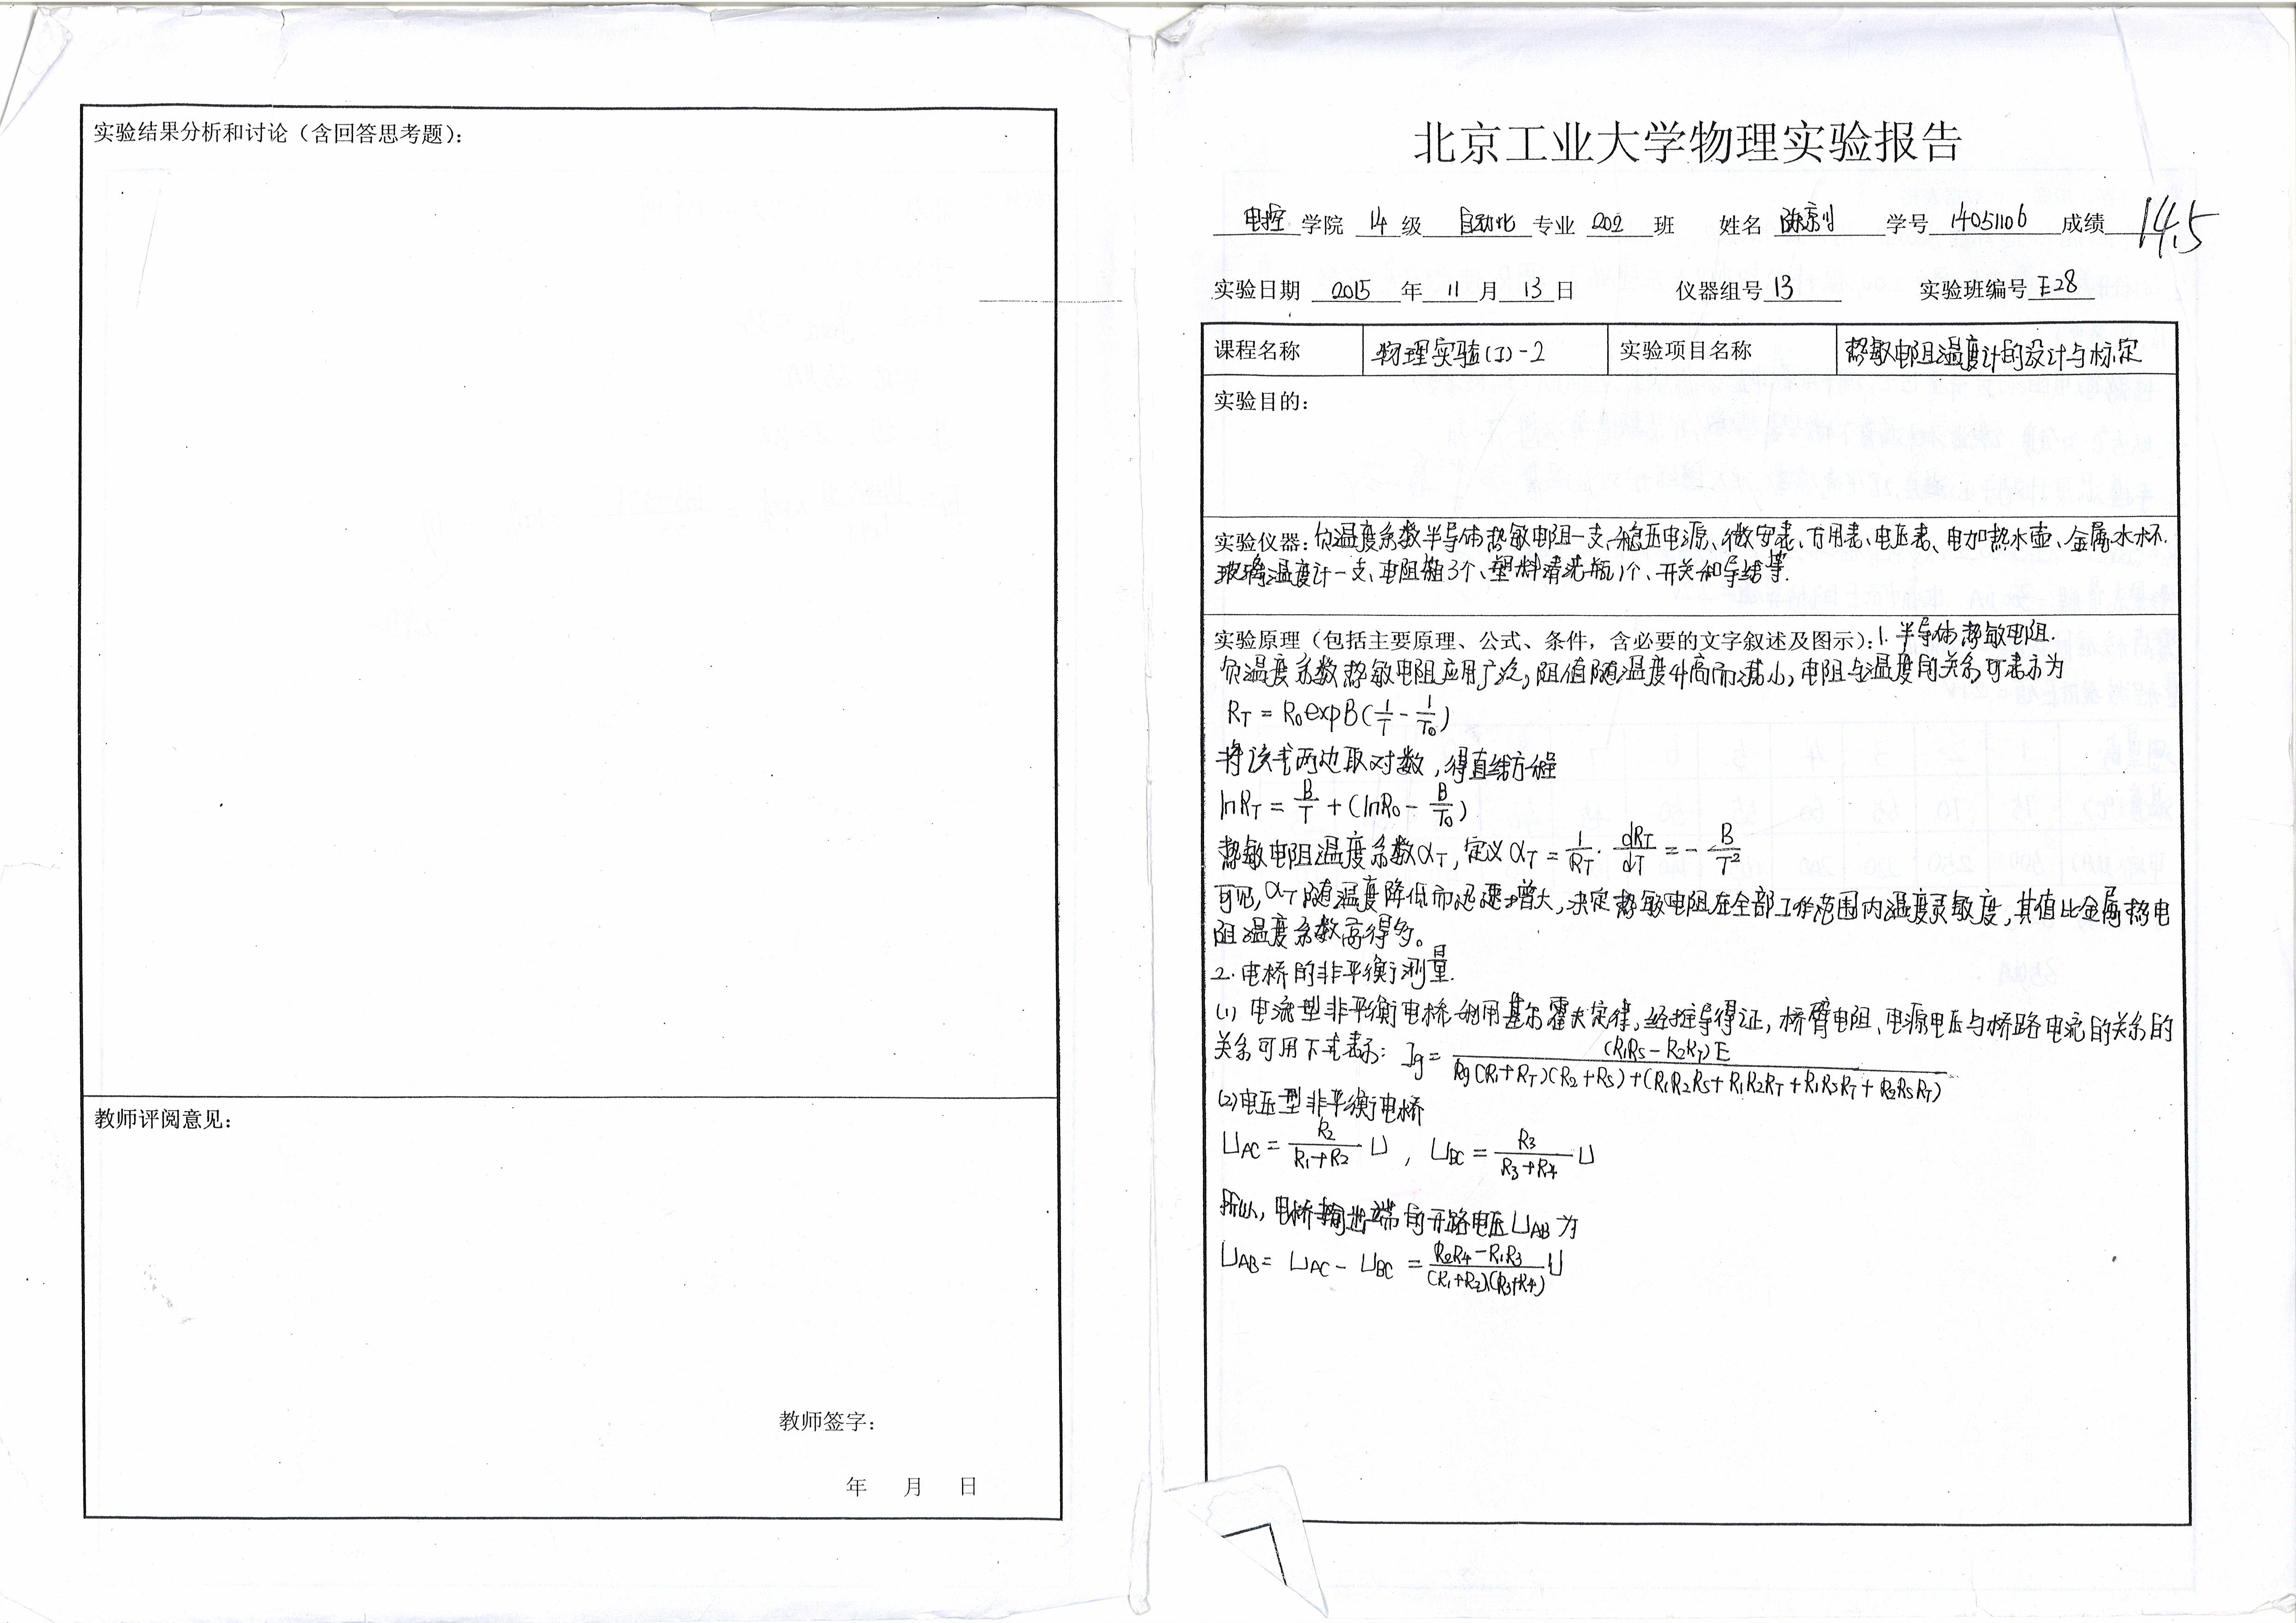 实验结果分析和讨论（含回答思考题）：
教师评阅意见：
教师签字：
年 月 日
北京工业大学物理实验报告
电控 学院 14 级 自动化 专业 202 班 姓名 学号 14051106 成绩 14.5
实验日期 2015 年 11 月 13 日 仪器组号 13 实验班编号 E28
课程名称 物理实验(I)-2 实验项目名称 热敏电阻温度计的设计与标定
实验目的：
实验仪器：负温度系数半导体热敏电阻一支、稳压电源、微安表、万用表、电压表、电加热水壶、金属水杯.
玻璃温度计一支、电阻箱3个、塑料清洗瓶1个、开关和导线等.
实验原理（包括主要原理、公式、条件，含必要的文字叙述及图示）：1.半导体热敏电阻.
负温度系数热敏电阻应用广泛，阻值随温度升高而减小，电阻与温度的关系可表示为
R_T = R_0 exp B(1/T - 1/T_0)
将该式两边取对数，得直线方程
lnR_T = B/T + (lnR_0 - B/T_0)
热敏电阻温度系数α_T，定义α_T = 1/R_T · dR_T/dT = - B/T²
可见，α_T随温度降低而迅速增大，决定热敏电阻在全部工作范围内温度灵敏度，其值比金属热电
阻温度系数高得多。
2.电桥的非平衡测量.
(1) 电流型非平衡电桥 利用基尔霍夫定律，经推导得证，桥臂电阻、电源电压与桥路电流的关系的
关系可用下式表示：Ig = (R_1R_S - R_2R_T)E / Rg(R_1+R_T)(R_2+R_S)+(R_1R_2R_S+R_1R_2R_T+R_1R_SR_T+R_2R_SR_T)
(2)电压型非平衡电桥
U_AC = R_2/(R_1+R_2) U , U_BC = R_3/(R_3+R_4) U
所以，电桥输出端的开路电压U_AB为
U_AB = U_AC - U_BC = (R_2R_4-R_1R_3)/((R_1+R_2)(R_3+R_4)) U